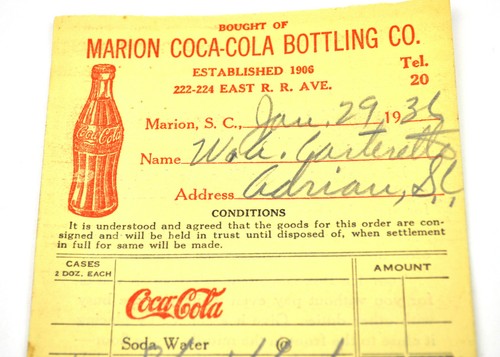 BOUGHT OF
MARION COCA-COLA BOTTLING CO.
ESTABLISHED 1906
Tel.
20
222-224 EAST R. R. AVE.
Coca-Cola
Marion, S. C., Jan. 29 1936
Name W. A.
Address Adrian, S.C,
CONDITIONS
It is understood and agreed that the goods for this order are con-
signed and will be held in trust until disposed of, when settlement
in full for same will be made.
CASES
2 DOZ. EACH
AMOUNT
Coca-Cola
Soda Water @